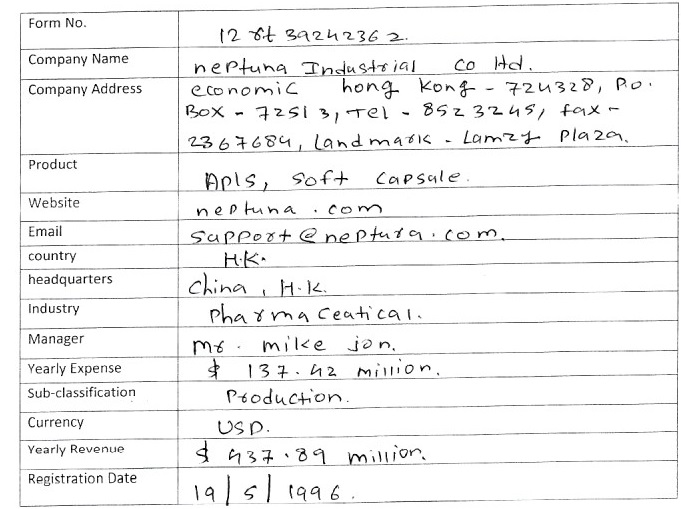 Form No.
12 rt 39242362.
Company Name
neptuna Industrial co ltd.
Company Address
economic hong kong - 724328, P.O.
BOX - 72513, Tel - 8523245, fax -
2367684, Landmark - Lamzy Plaza.
Product
APIs, soft capsule.
Website
neptuna.com
Email
support@neptura.com.
country
H.K.
headquarters
China, H.K.
Industry
pharmaceatical.
Manager
mr. mike jon.
Yearly Expense
$ 137.42 million.
Sub-classification
Production.
Currency
USD.
Yearly Revenue
$ 437.89 million.
Registration Date
19/5/1996.